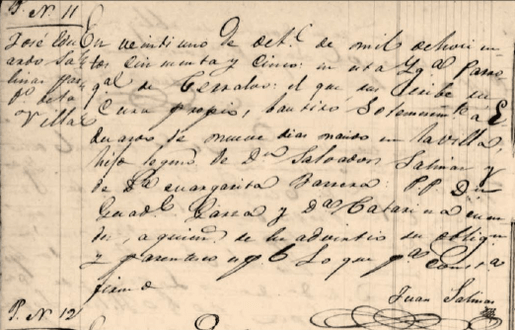 P. N. 11
José Edu
ardo Sa
linas pr
p.r de la
Villa
En veintiuno de oct.e de mil ochoci en
tos cincuenta y cinco: en esta Yg.a Parro
q.al de Cerralvo: el que suscribe su
Cura propio, bautizó Solemnem.te a E
duardo de nueve dias nacido en la villa,
hijo legmo de D.n Salvador Salinas y
de D.a Margarita Barrera: P.P. D.n
Guad.e Garza y D.a Catarina
a quienes se les advirtio su obligon
y parentesco Lo que p.a Consta
firmo
Juan Salinas
P. N. 12